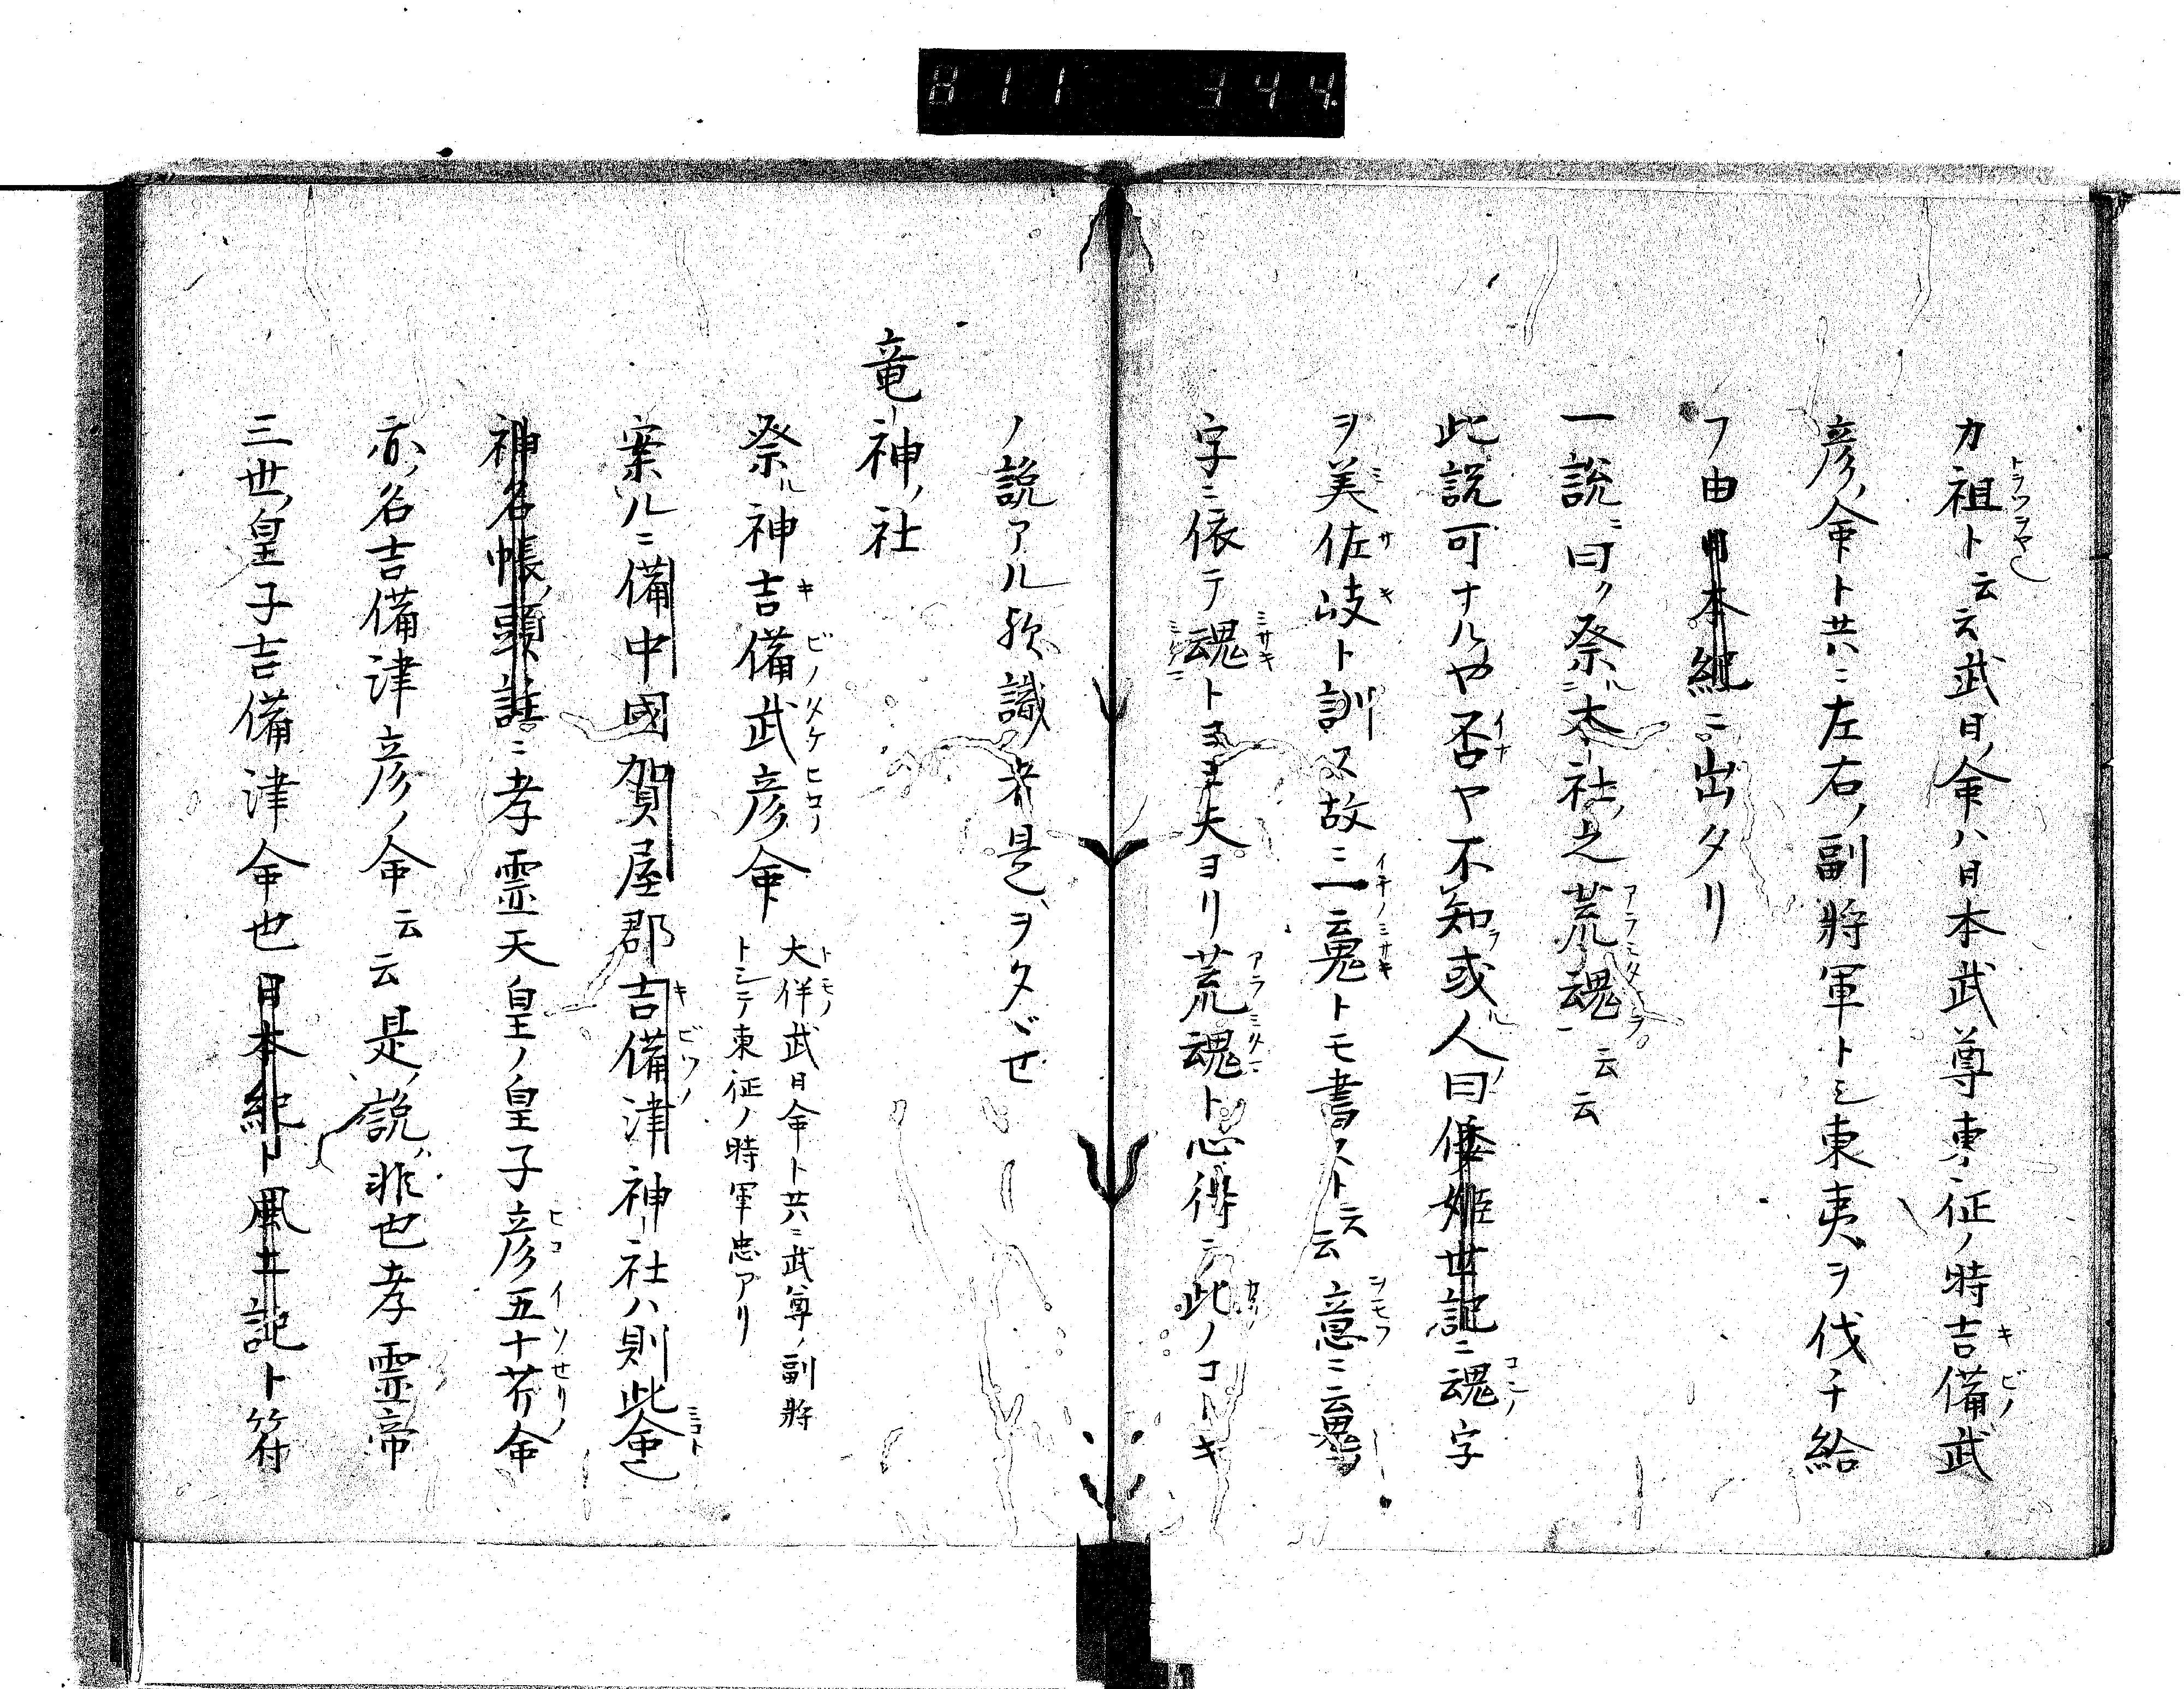 811 344
カ祖ト云云武日ノ命ハ日本武尊東征ノ時吉備武
彦ノ命ト共ニ左右ノ副將軍トシ東夷ヲ伐チ給
フ由日本紀ニ出タリ
一説ニ曰ク祭ル本社ノ之荒魂云云
此説可ナルヤ否ヤ不知或人曰倭姫世記ニ魂字
ヲ美佐岐ト訓ス故ニ一魂トモ書スト云云意ニ魂
字ニ依テ魂トヨミ夫ヨリ荒魂ト心得テ此ノコトキ
ノ説アル歟識者是ヲタヾせ
竜神ノ社
祭ル神吉備武彦ノ命 大伴武日命ト共ニ武尊ノ副將
トシテ東征ノ時軍忠アリ
案ルニ備中國賀屋郡吉備津神社ハ則此命也
神名帳ノ頭註ニ孝霊天皇ノ皇子彦五十芹命
亦ノ名吉備津彦ノ命云云是ノ説ハ非也孝霊帝
三世ノ皇子吉備津命也日本紀ト風土記ト符